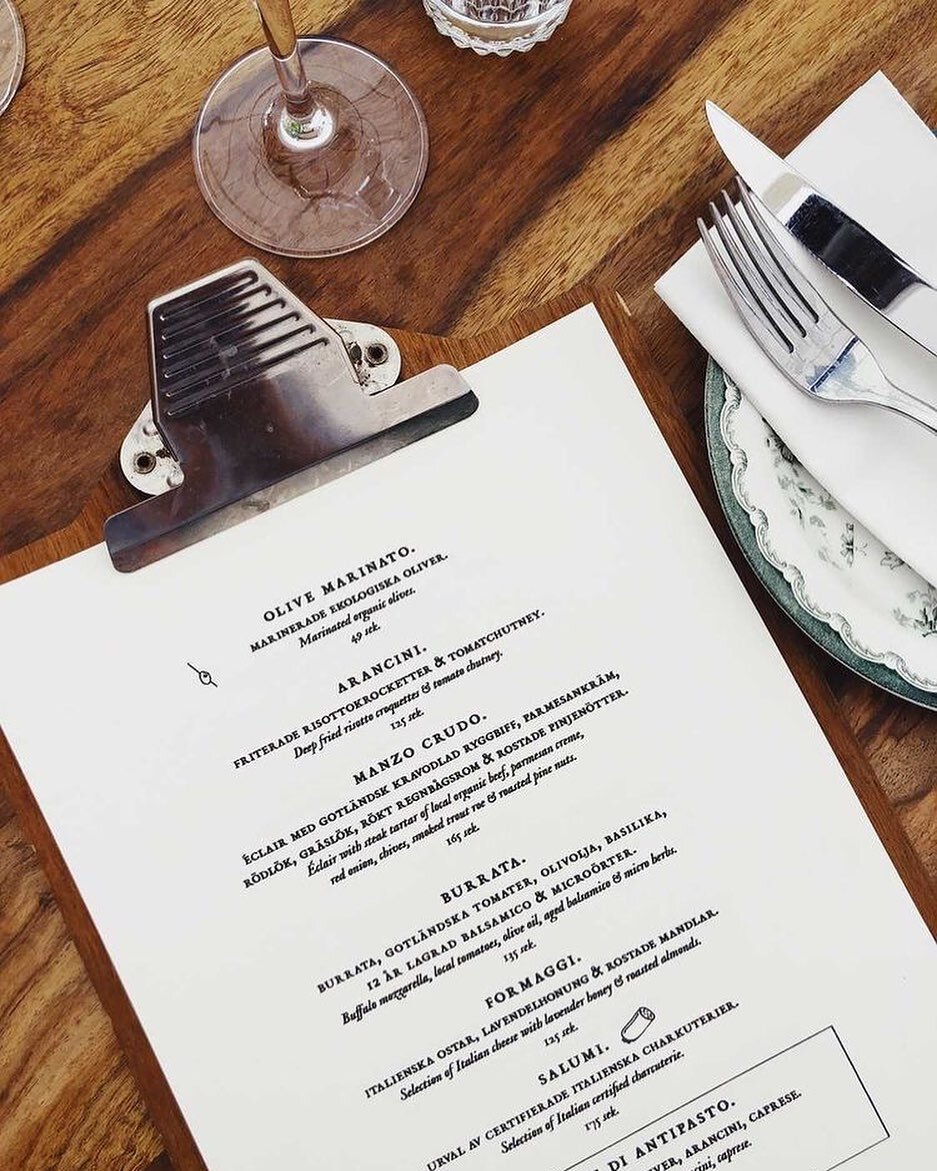 OLIVE MARINATO.
MARINERADE EKOLOGISKA OLIVER.
Marinated organic olives.
49 sek.
ARANCINI.
FRITERADE RISOTTOKROCKETTER & TOMATCHUTNEY.
Deep fried risotto croquettes & tomato chutney.
125 sek.
MANZO CRUDO.
ÉCLAIR MED GOTLÄNDSK KRAVODLAD RYGGBIFF, PARMESANKRÄM,
RÖDLÖK, GRÄSLÖK, RÖKT REGNBÅGSROM & ROSTADE PINJENÖTTER.
Éclair with steak tartar of local organic beef, parmesan creme,
red onion, chives, smoked trout roe & roasted pine nuts.
165 sek.
BURRATA.
BURRATA, GOTLÄNDSKA TOMATER, OLIVOLJA, BASILIKA,
12 ÅR LAGRAD BALSAMICO & MICROÖRTER.
Buffalo mozzarella, local tomatoes, olive oil, aged balsamico & micro herbs.
135 sek.
FORMAGGI.
ITALIENSKA OSTAR, LAVENDELHONUNG & ROSTADE MANDLAR.
Selection of Italian cheese with lavender honey & roasted almonds.
125 sek.
SALUMI.
URVAL AV CERTIFIERADE ITALIENSKA CHARKUTERIER.
Selection of Italian certified charcuterie.
175 sek.
DI ANTIPASTO.
ARANCINI, CAPRESE.
caprese.